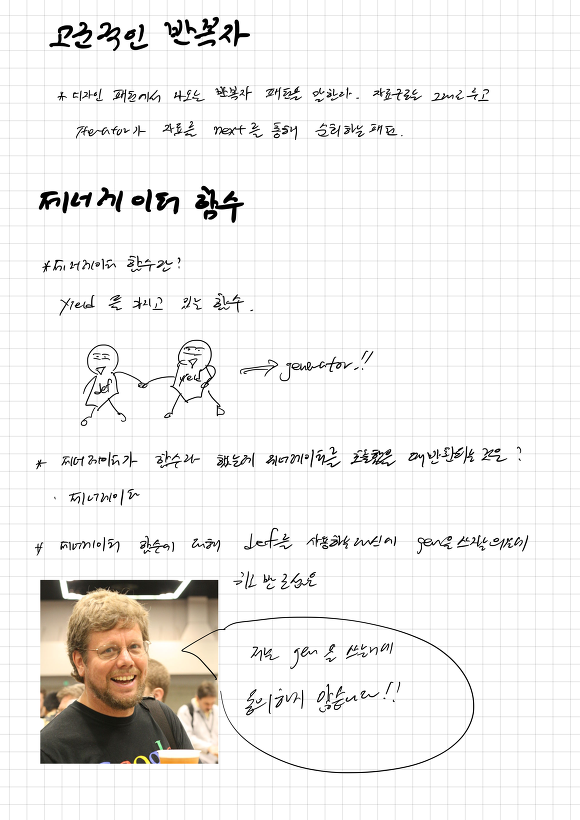 고전적인 반복자
* 디자인 패턴에서 나오는 반복자 패턴을 말한다. 자료구조는 그대로 두고
Iterator가 자료를 next를 통해 순회하는 패턴.
제너레이터 함수
* 제너레이터 함수란?
yield 를 가지고 있는 함수.
def
yield
generator!!
* 제너레이터가 함수라 했는데 제너레이터를 호출했을 때 반환하는 것은?
· 제너레이터
* 제너레이터 함수에 대해 def를 사용하는 대신에 gen을 쓰자는 의견에
귀도 반 로섬은
저는 gen 을 쓰는데에
동의하지 않습니다!!